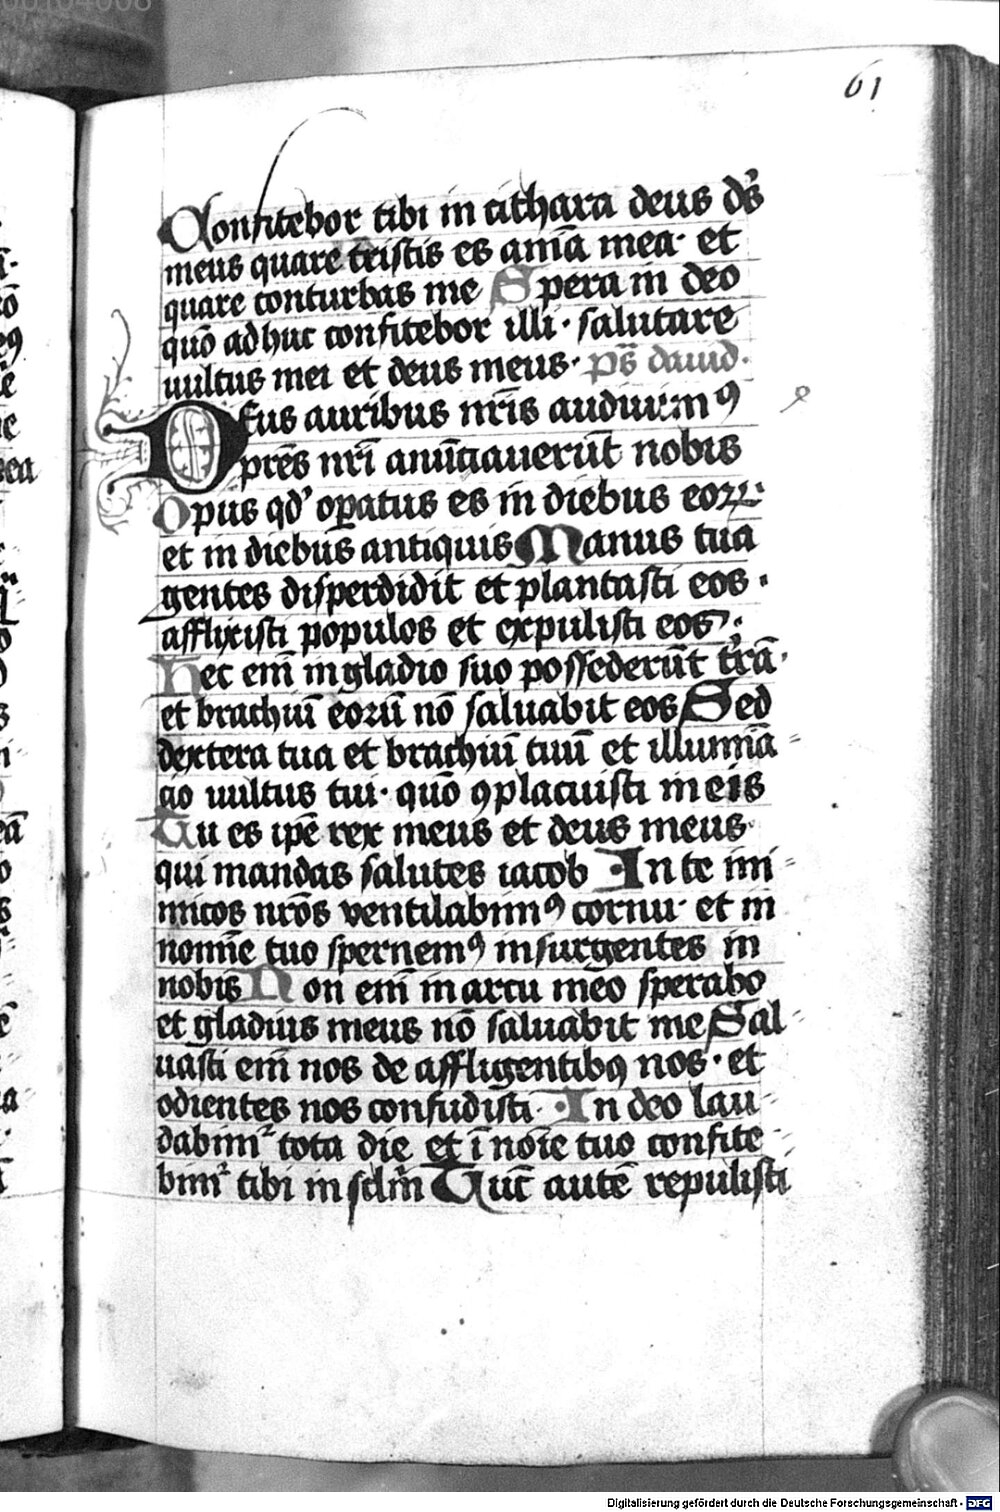 61
Confitebor tibi in cithara deus ds̄
meus quare tristis es aīa mea· et
quare conturbas me Spera in deo
quō adhuc confitebor illi· salutare
uultus mei et deus meus· ps̄ dauid·
Deus auribus nr̄is audiuimꝰ
pr̄es nr̄i anūciauerūt nobis
Opus qd' oꝑatus es in diebus eoꝝ·
et in diebus antiquis Manus tua
gentes disperdidit et plantasti eos·
afflixisti populos et expulisti eos·
Nec em̄ in gladio suo possederūt tr̄a·
et brachiū eorū nō saluabit eos Sed
dextera tua et brachiū tuū et illumīa
cio uultus tui· quō ꝯplacuisti in eis
Tu es ip̄e rex meus et deus meus·
qui mandas salutes iacob In te ini
micos nr̄os ventilabimꝰ cornu· et in
nomīe tuo spernemꝰ insurgentes in
nobis Non em̄ in arcu meo sperabo
et gladius meus nō saluabit me Sal
uasti em̄ nos de affligentibꝫ nos· et
odientes nos confudisti· In deo lau
dabim᷑ tota die et ī noīe tuo confite
bim᷑ tibi in sclm̄ Nūc autē repulisti
Digitalisierung gefördert durch die Deutsche Forschungsgemeinschaft - DFG